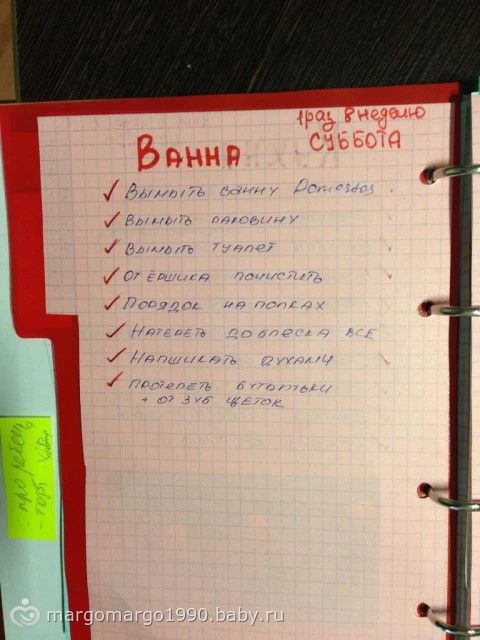 1 раз в неделю
СУББОТА
ВАННА
Вымыть ванну Domestos
Вымыть раковину
Вымыть туалет
От ёршика почистить
Порядок на полках
Натереть до блеска все
Напшикать духами
Протереть бутыльки
+ от зуб щеток
торт
margomargo1990.baby.ru